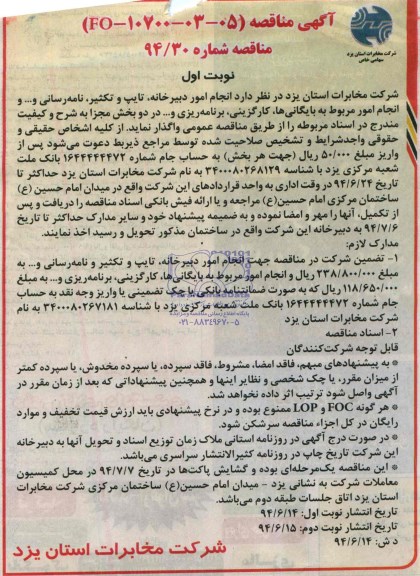 آگهی مناقصه (FO-۱۰۷۰۰-۰۳-۰۵)
مناقصه شماره ۹۴/۳۰
شرکت مخابرات استان یزد
سهامی خاص
نوبت اول
شرکت مخابرات استان یزد در نظر دارد انجام امور دبیرخانه، تایپ و تکثیر، نامه‌رسانی و... و
انجام امور مربوط به بایگانی‌ها، کارگزینی، برنامه‌ریزی و... در دو بخش مجزا به شرح و کیفیت
مندرج در اسناد مربوطه را از طریق مناقصه عمومی واگذار نماید. از کلیه اشخاص حقیقی و
حقوقی واجدشرایط و تشخیص صلاحیت شده توسط مراجع ذیربط دعوت می‌شود پس از
واریز مبلغ ۵۰/۰۰۰ ریال (جهت هر بخش) به حساب جام شماره ۱۶۴۴۴۴۴۴۷۲ بانک ملت
شعبه مرکزی یزد با شناسه ۳۴۰۰۰۸۰۲۶۸۱۲۹ به نام شرکت مخابرات استان یزد حداکثر تا
تاریخ ۹۴/۶/۲۴ در وقت اداری به واحد قراردادهای این شرکت واقع در میدان امام حسین (ع)
ساختمان مرکزی امام حسین (ع) مراجعه و با ارائه فیش بانکی اسناد مناقصه را دریافت و پس
از تکمیل، آنها را مهر و امضا نموده و به ضمیمه پیشنهاد خود و سایر مدارک حداکثر تا تاریخ
۹۴/۷/۶ به دبیرخانه این شرکت واقع در ساختمان مذکور تحویل و رسید اخذ نمایند.
مدارک لازم:
۱- تضمین شرکت در مناقصه جهت انجام امور دبیرخانه، تایپ و تکثیر و نامه‌رسانی و... به
مبلغ ۲۳۸/۸۰۰/۰۰۰ ریال و انجام امور مربوط به بایگانی‌ها، کارگزینی، برنامه‌ریزی و... به مبلغ
۱۱۸/۶۵۰/۰۰۰ ریال که به صورت ضمانتنامه بانکی یا چک تضمینی یا واریز وجه نقد به حساب
جام شماره ۱۶۴۴۴۴۴۴۷۲ بانک ملت شعبه مرکزی یزد با شناسه ۳۴۰۰۰۸۰۲۶۷۱۸۱ به نام
شرکت مخابرات استان یزد
۰۲۱-۸۸۳۴۹۶۷۰-۵
۲- اسناد مناقصه
قابل توجه شرکت‌کنندگان
* به پیشنهادهای مبهم، فاقد امضا، مشروط، فاقد سپرده، یا سپرده مخدوش، یا سپرده کمتر
از میزان مقرر، یا چک شخصی و نظایر اینها و همچنین پیشنهاداتی که بعد از زمان مقرر در
آگهی واصل شود ترتیب اثر داده نخواهد شد.
* هر گونه FOC و LOP ممنوع بوده و در نرخ پیشنهادی باید ارزش قیمت تخفیف و موارد
رایگان در کل اجزاء مناقصه سرشکن شود.
* در صورت درج آگهی در روزنامه استانی ملاک زمان توزیع اسناد و تحویل آنها به دبیرخانه
این شرکت تاریخ چاپ در روزنامه کثیرالانتشار سراسری می‌باشد.
* این مناقصه یک‌مرحله‌ای بوده و گشایش پاکت‌ها در تاریخ ۹۴/۷/۷ در محل کمیسیون
معاملات شرکت به نشانی یزد - میدان امام حسین(ع) ساختمان مرکزی شرکت مخابرات
استان یزد اتاق جلسات طبقه دوم می‌باشد.
تاریخ انتشار نوبت اول: ۹۴/۶/۱۴
تاریخ انتشار نوبت دوم: ۹۴/۶/۱۵
د ش: ۹۴/۶/۱۴
شرکت مخابرات استان یزد